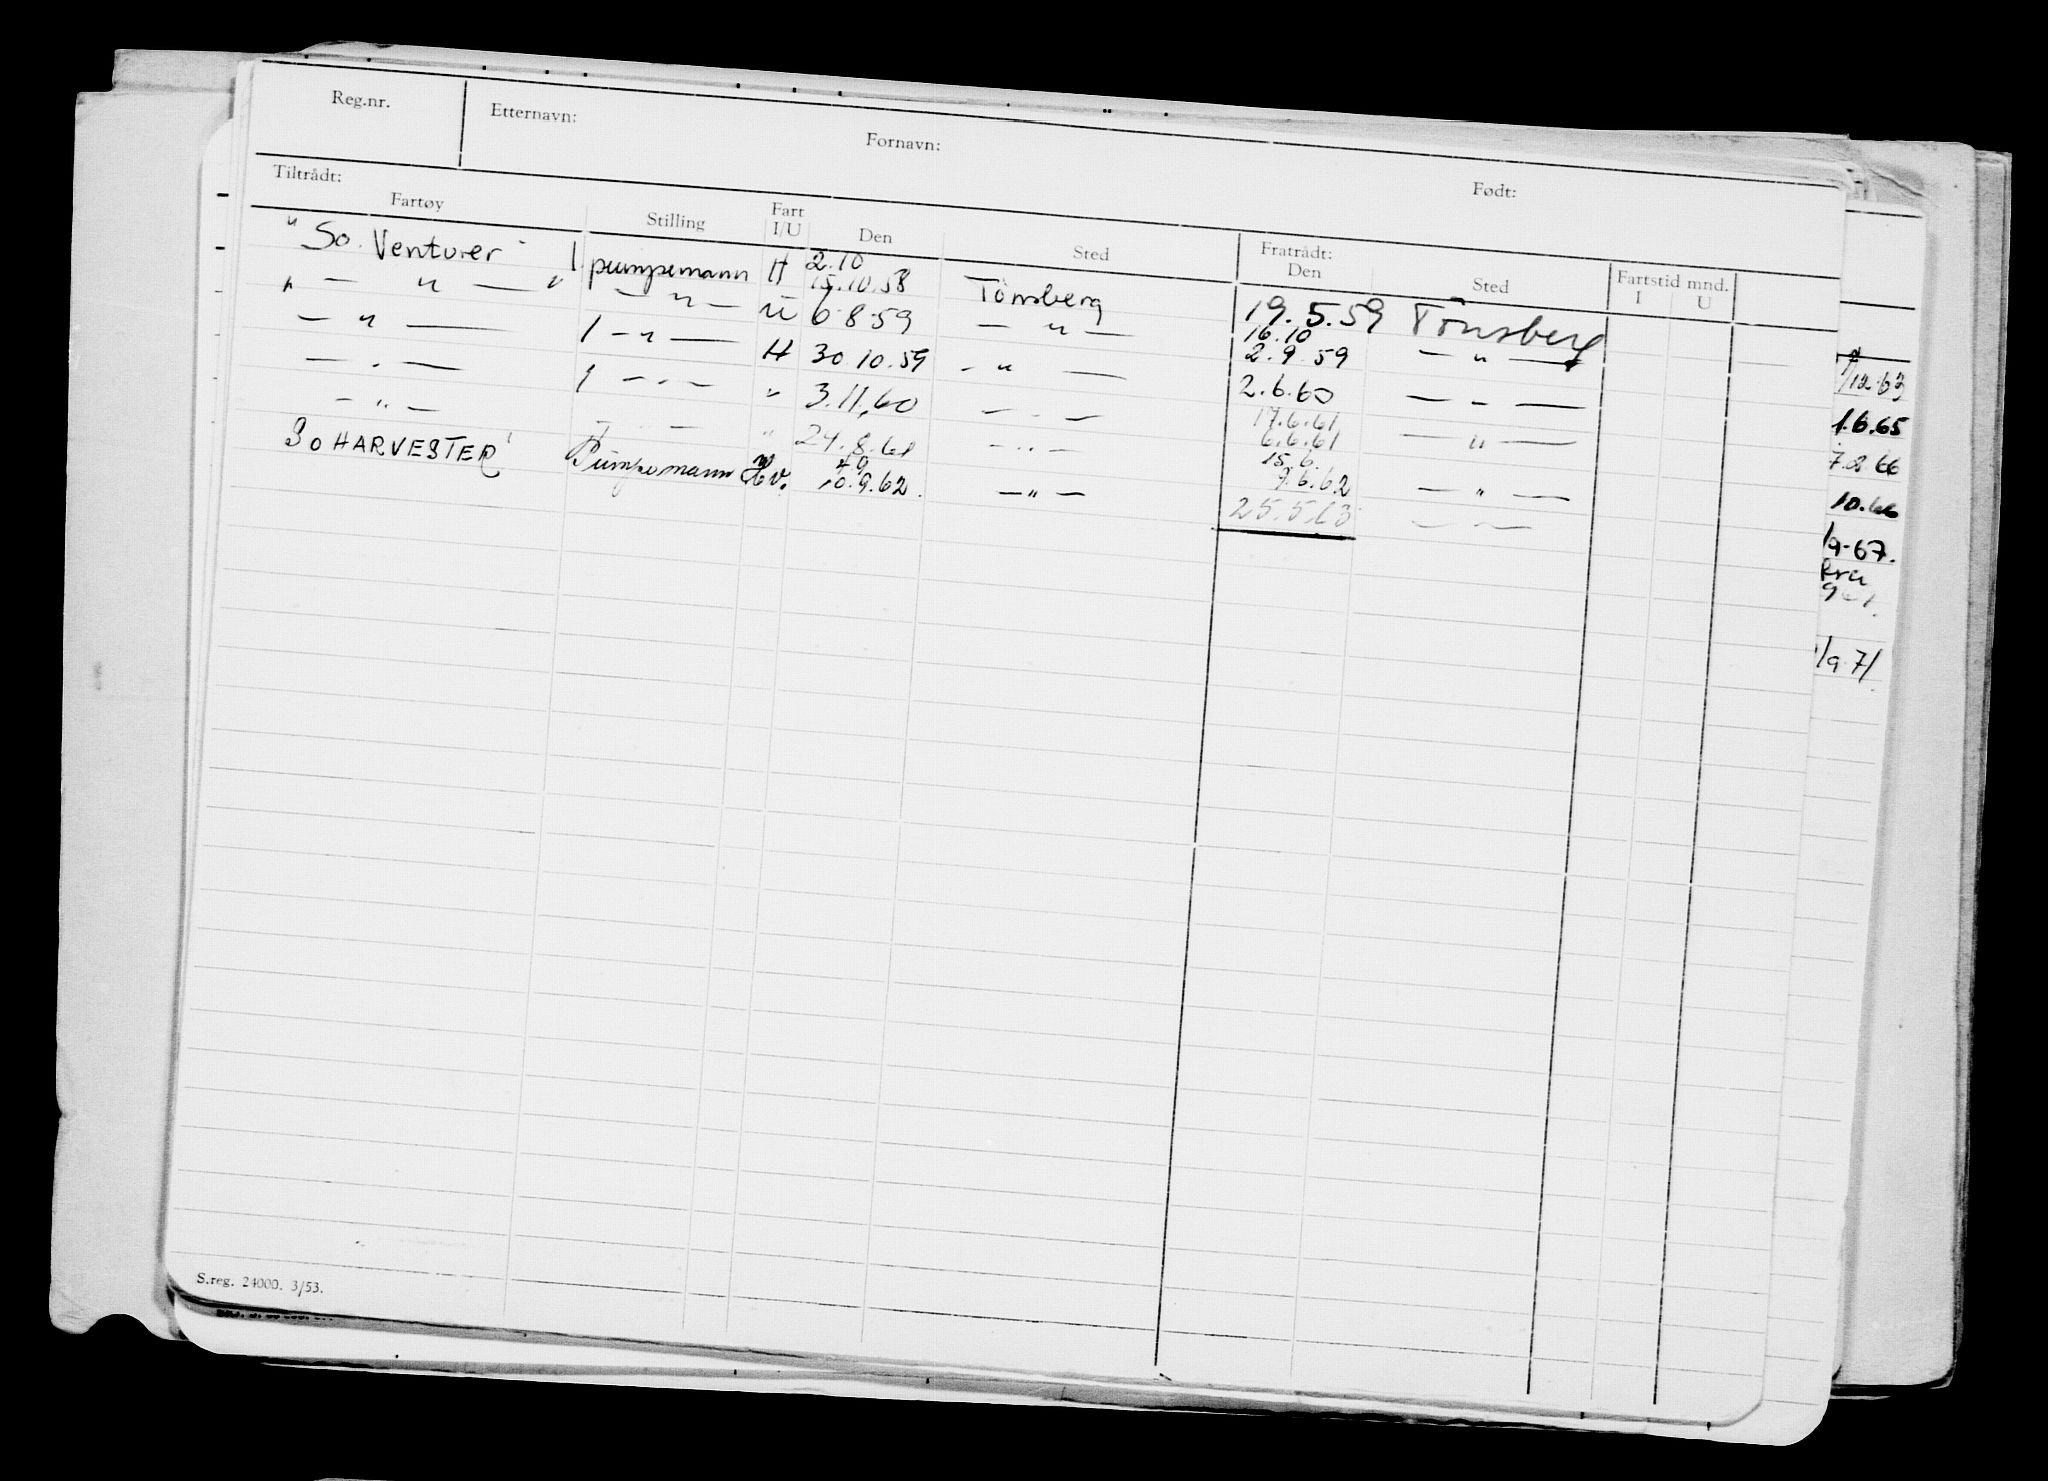 Reg.nr. Etternavn: Fornavn: Født:
Tiltrådt:
Fartøy Stilling Fart I/U Den Sted Fratrådt: Den Sted Fartstid mnd. I U
"So. Venturer" 1. pumpemann H 2.10 15.10.58 Tönsberg 19.5.59 Tönsberg
" — " — " — " — U 6.8.59 — " — 16.10 2.9.59 — " —
— " — 1 — " — H 30.10.59 - " — 2.6.60 — " —
— " — 1 — " — " 3.11.60 — " — 17.6.61 6.6.61 — " —
— " — — " — " 24.8.61 — " — 15.6. 9.6.62 — " —
So HARVESTER' Pumpemann Hv. 10.9.62. — " — 25.5.63 — " —
/12.63
1.6.65
7.2.66
10.66
/9-67.
/9.71
S.reg. 24000. 3/53.